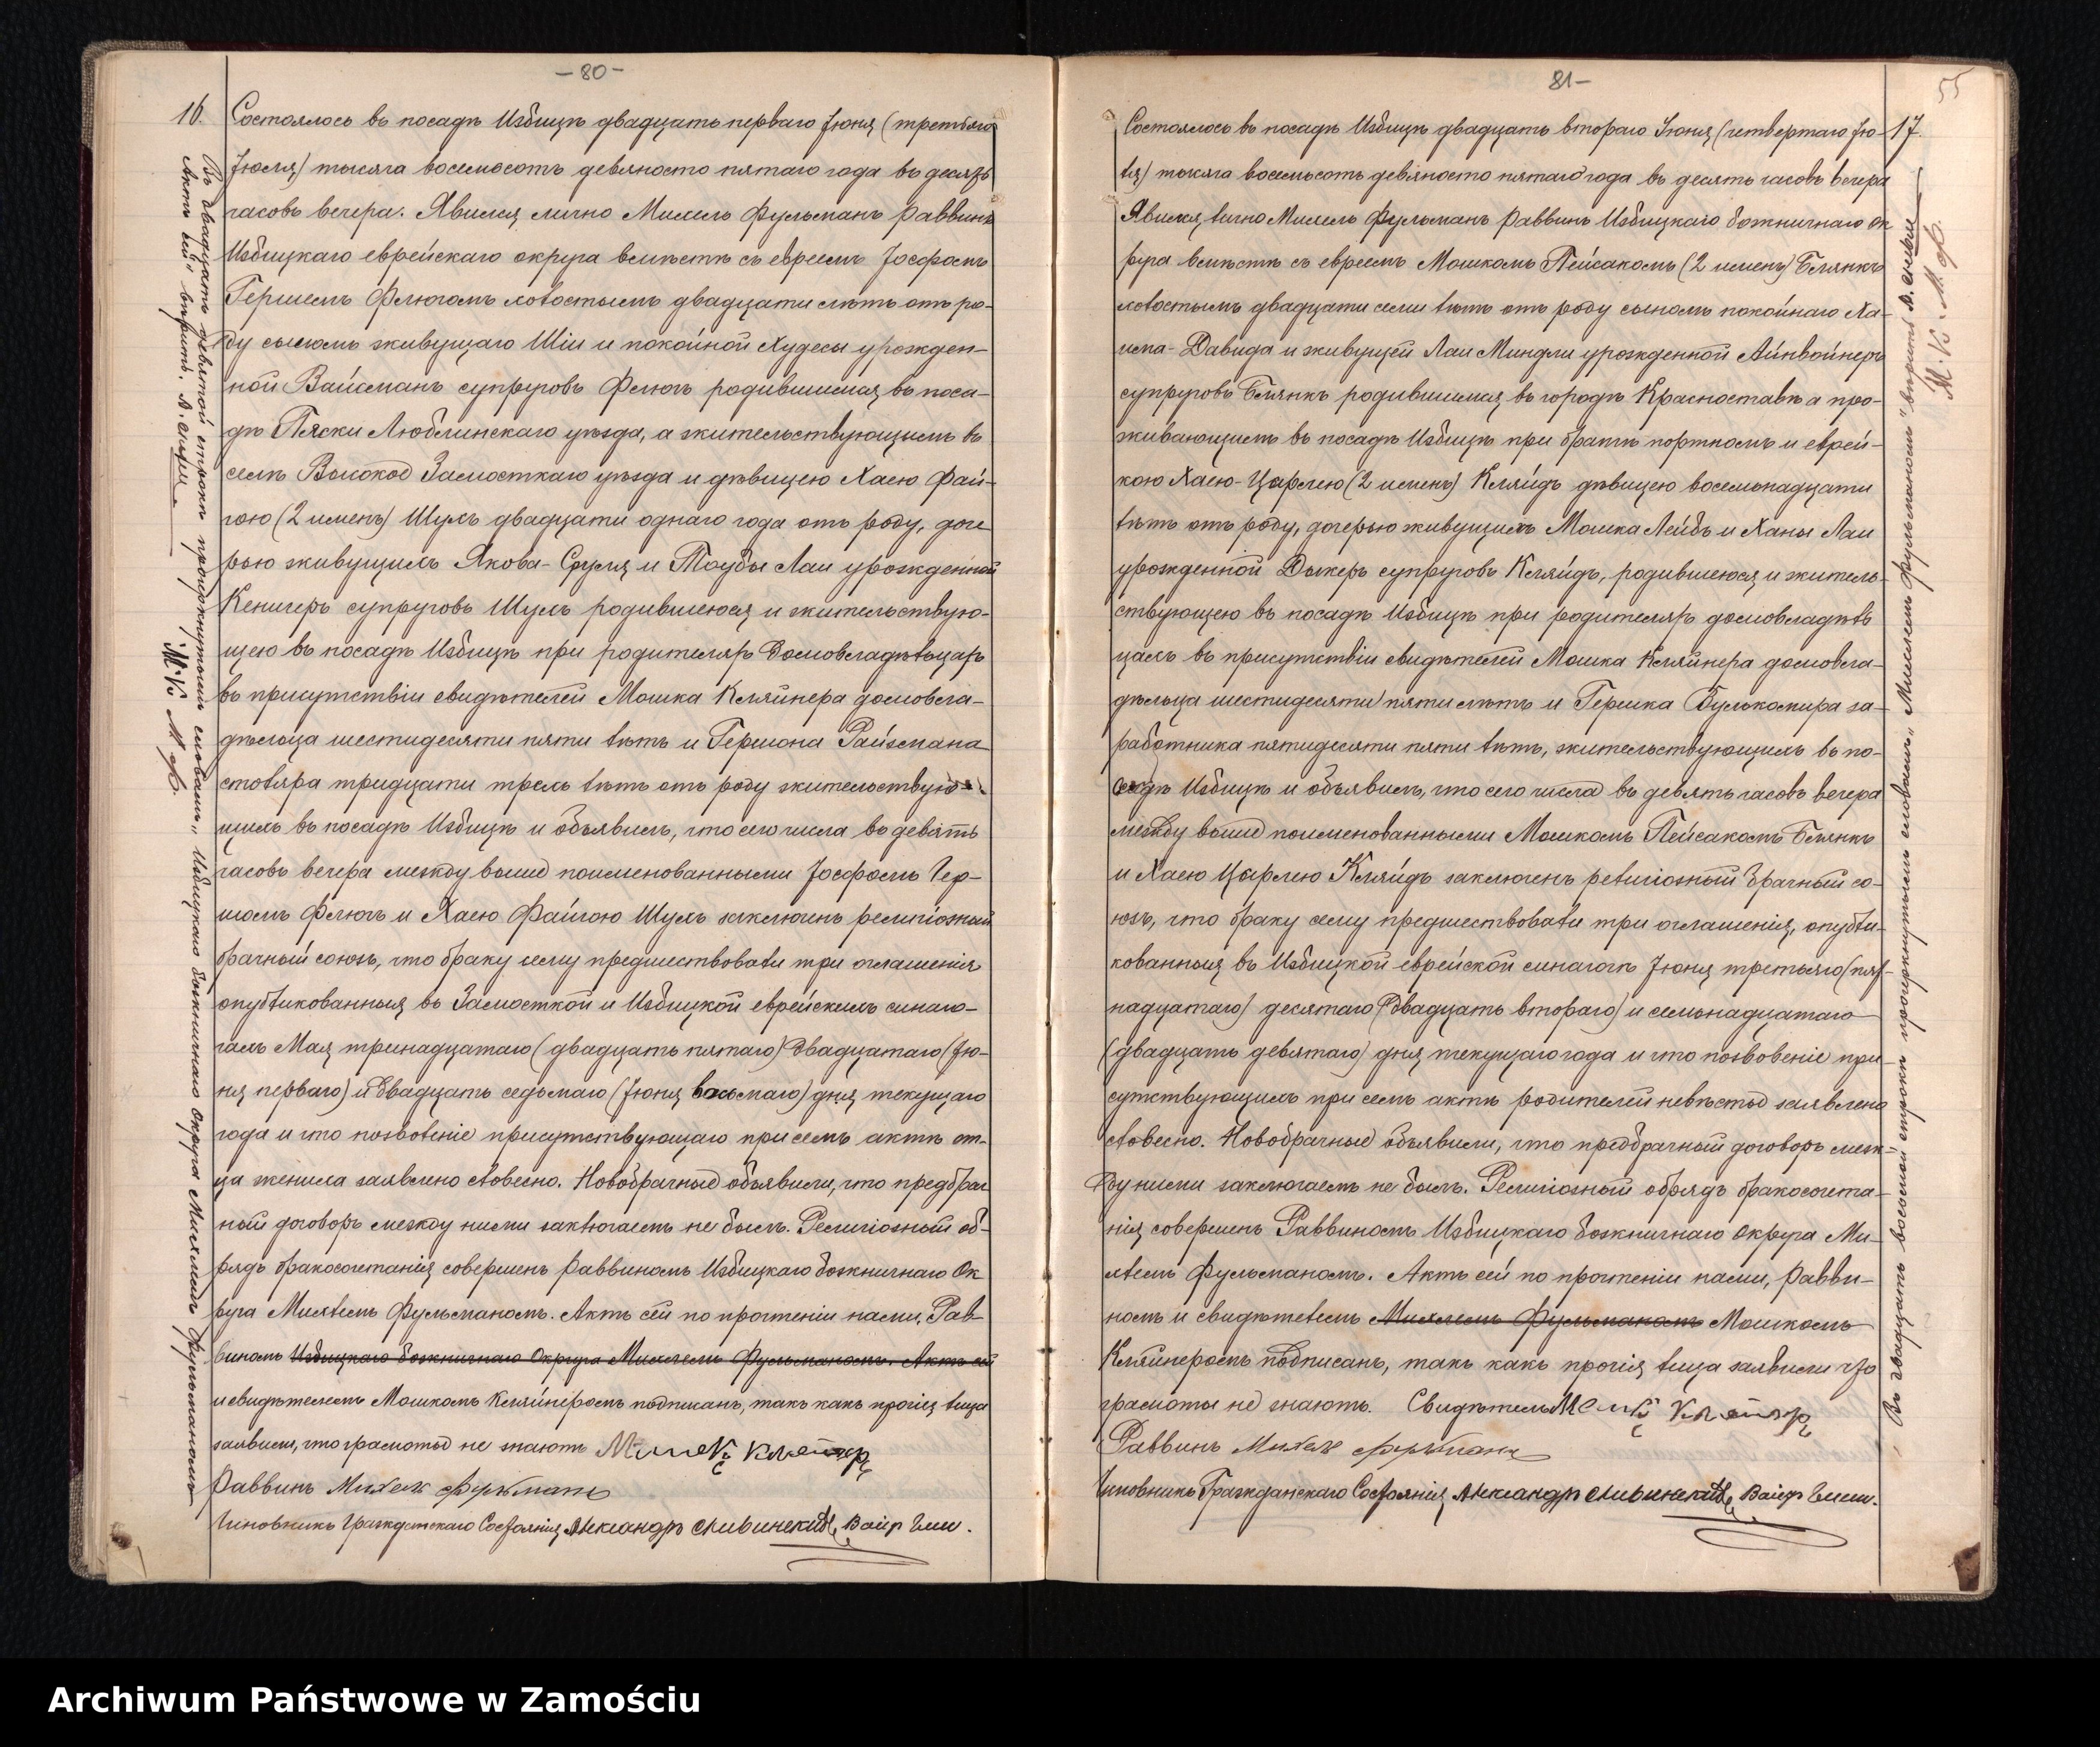 - 80 -
16.
Состоялось въ посадѣ Избицѣ двадцать перваго Іюня (третьяго
Іюля) тысяча восемьсотъ девяносто пятаго года въ десять
часовъ вечера. Явился лично Михель Фульманъ Раввинъ
Избицкаго еврейскаго округа вмѣстѣ съ евреемъ Іосфомъ
Гершемъ Флюгомъ холостымъ двадцати лѣтъ отъ ро-
ду сыномъ живущаго Шіи и покойной Худесы урожден-
ной Вайсманъ супруговъ Флюгъ родившимся въ поса-
дѣ Пяски Люблинскаго уѣзда, а жительствующимъ въ
селѣ Высокое Замосткаго уѣзда и дѣвицею Хаею Фай-
гою (2 именъ) Шухъ двадцати однаго года отъ роду, доче
рью живущихъ Якова-Сруля и Таубы Лаи урожденной
Кенигеръ супруговъ Шухъ родившеюся и жительствую-
щею въ посадѣ Избицѣ при родителяхъ домовладѣльцахъ
въ присутствіи свидѣтелей Мошка Кляйнера домовла-
дѣльца шестидесяти пяти лѣтъ и Гершона Райзмана
столяра тридцати трехъ лѣтъ отъ роду жительствую-
щихъ въ посадѣ Избицѣ и объявилъ, что сего числа въ девять
часовъ вечера между выше поименованными Іосфомъ Гер-
шомъ Флюгъ и Хаею Файгою Шухъ заключенъ религіозный
брачный союзъ, что браку сему предшествовали три оглашенія
опубликованныя въ Замосткой и Избицкой еврейскихъ синаго-
гахъ Мая тринадцатаго (двадцать пятаго) двадцатаго (Ію-
ня перваго) и двадцать седьмаго (Іюня восьмаго) дня текущаго
года и что позволеніе присутствующаго при семъ актѣ от-
ца жениха заявлено словесно. Новобрачные объявили, что предбрач
ный договоръ между ними заключаемъ не былъ. Религіозный об-
рядъ бракосочетанія совершенъ Раввиномъ Избицкаго божничнаго Ок
руга Михелемъ Фульманомъ. Актъ сей по прочтеніи нами, Рав-
виномъ Избицкаго божничнаго Округа Михелемъ Фульманомъ. Актъ сей
и свидѣтелемъ Мошкомъ Кляйнеромъ подписанъ, такъ какъ прочія лица
заявили, что грамоты не знаютъ
Раввинъ Михель Фульманъ
Чиновникъ Гражданскаго Состоянія Александръ Сливинскій, Войтъ Гмин.
Въ двадцать девятой строкѣ прочеркнутыя словами „Избицкаго божничнаго округа Михелемъ Фульманомъ
Актъ сей" вѣрить.
М. К. М. Ф.
81 -
55
17.
Состоялось въ посадѣ Избицѣ двадцать втораго Іюня (четвертаго Ію-
ля) тысяча восемьсотъ девяносто пятаго года въ десять часовъ вечера
Явился лично Михель Фульманъ Раввинъ Избицкаго божничнаго ок
руга вмѣстѣ съ евреемъ Мошкомъ Пейсакомъ (2 именъ) Блянкъ
холостымъ двадцати семи лѣтъ отъ роду сыномъ покойнаго Ха-
има-Давида и живущей Лаи Миндли урожденной Айнвойнеръ
супруговъ Блянкъ родившимся въ городѣ Красноставѣ а про-
живающимъ въ посадѣ Избицѣ при братѣ портномъ и еврей-
кою Хаею-Царлею (2 именъ) Кляйдъ дѣвицею восемьнадцати
лѣтъ отъ роду, дочерью живущихъ Мошка Лейбъ и Ханы Лаи
урожденной Дыкеръ супруговъ Кляйдъ, родившеюся и житель-
ствующею въ посадѣ Избицѣ при родителяхъ домовладѣль
цахъ въ присутствіи свидѣтелей Мошка Кляйнера домовла-
дѣльца шестидесяти пяти лѣтъ и Гершка Вулькомира за-
работника пятидесяти пяти лѣтъ, жительствующихъ въ по-
садѣ Избицѣ и объявилъ, что сего числа въ девять часовъ вечера
между выше поименованными Мошкомъ Пейсакомъ Блянкъ
и Хаею Царлею Кляйдъ заключенъ религіозный брачный со-
юзъ, что браку сему предшествовали три оглашенія, опубли-
кованныя въ Избицкой еврейской синагогѣ Іюня третьяго (пят-
надцатаго) десятаго (двадцать втораго) и семьнадцатаго
(двадцать девятаго) дня текущаго года и что позволеніе при-
сутствующихъ при семъ актѣ родителей невѣсты заявлено
словесно. Новобрачные объявили, что предбрачный договоръ меж-
ду ними заключаемъ не былъ. Религіозный обрядъ бракосочета-
нія совершенъ Раввиномъ Избицкаго божничнаго округа Ми-
хлемъ Фульманомъ. Актъ сей по прочтеніи нами, Равви-
номъ и свидѣтелемъ Михелемъ Фульманомъ Мошкомъ
Кляйнеромъ подписанъ, такъ какъ прочія лица заявили что
грамоты не знаютъ. Свидѣтель
Раввинъ Михель Фульманъ
Чиновникъ Гражданскаго Состоянія Александръ Сливинскій, Войтъ Гмин.
Въ двадцать восьмой строкѣ прочеркнутыя словами „Михелемъ Фульманомъ" вѣрить
М. К. М. Ф.
Archiwum Państwowe w Zamościu